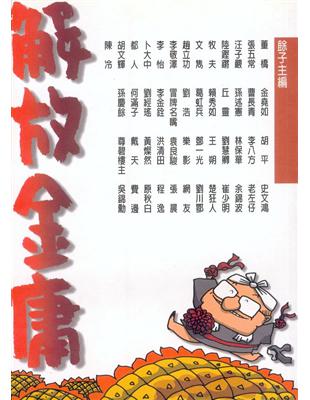 餘子主編
董橋 金堯如 胡平 史文鴻
張五常 曹長青 李八方 老左仔
汪子嚴 孫述憲 林保華 余錦波
陸鏗鏘 丘靈 劉慧卿 崔少明
牧夫 賴秀如 王朔 楚狂人
文雋 葛虹兵 鄧一光 劉川鄂
趙立功 劉浩 樂影 網友
李敬澤 冒牌名嘴 袁良駿 張晨
李怡 李金銓 洪清田 程逸
卜大中 劉經瑤 黃燦然 原秋白
都人 何滿子 戴天 費邊
胡文輝 孫慶餘 尊碧樓主 吳錦勳
陳冷
解放金庸